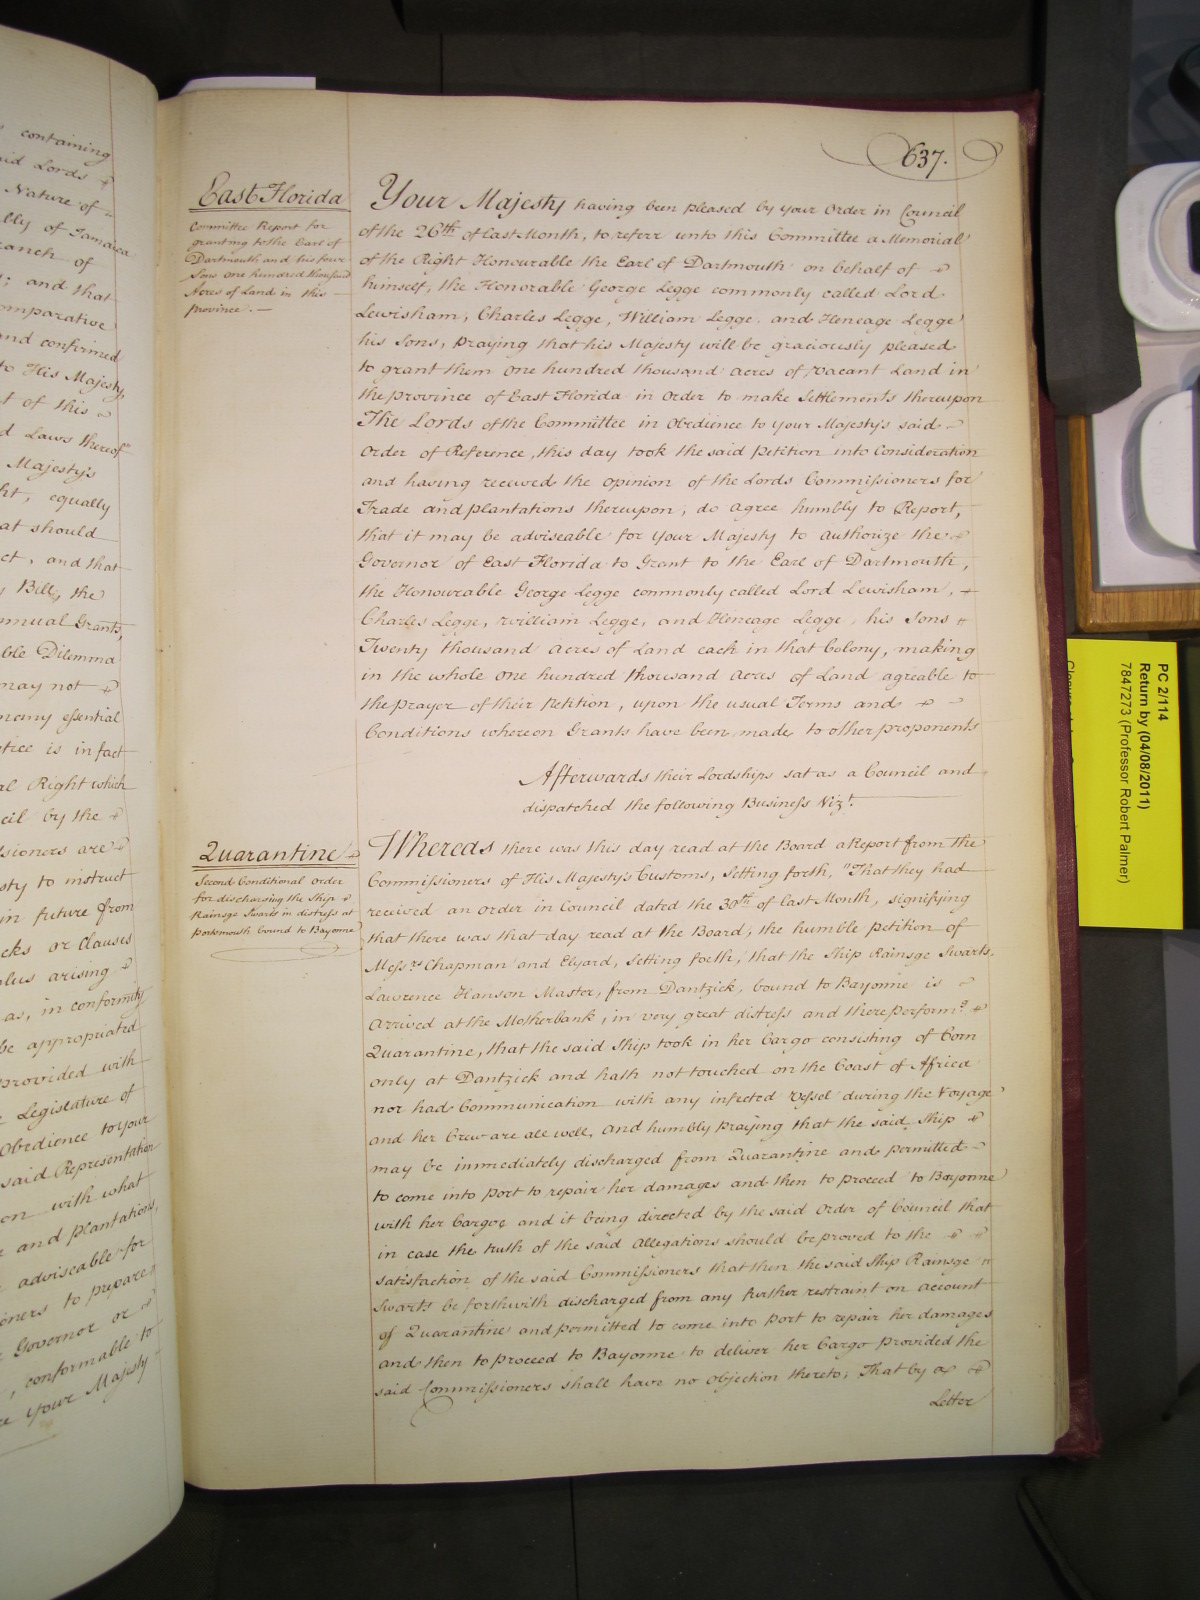 containing
Lords
Nature of
of Jamaica
ranch of
; and that
omparative
and confirmed
to His Majesty,
t of this
d Laws thereof
Majesty's
ht, equally
at should
ct, and that
Bill, the
nnual Grants,
ble Dilemma
may not
many essential
ctice is in fact
al Right which
cil by the
issioners are
sty to instruct
in future from
cks or Clauses
plus arising
as, in conformity
be appropriated
provided with
Legislature of
Obedience to your
said Representation
on with what
and Plantations,
adviseable for
oners to prepare
Governor or
, conformable to
your Majesty
637.
East Florida
Committee Report for
granting to the Earl of
Dartmouth and his four
Sons one hundred thousand
Acres of Land in this
Province. —
Your Majesty having been pleased by your Order in Council
of the 26th of last Month, to referr unto this Committee a Memorial
of the Right Honourable the Earl of Dartmouth on behalf of
himself, the Honorable George Legge commonly called Lord
Lewisham, Charles Legge, William Legge, and Heneage Legge
his Sons, praying that his Majesty will be graciously pleased
to grant them one hundred thousand Acres of vacant Land in
the province of East Florida in order to make Settlements thereupon
The Lords of the Committee in Obedience to your Majesty's said
Order of Reference, this day took the said Petition into Consideration
and having received the opinion of the Lords Commissioners for
Trade and Plantations thereupon, do agree humbly to Report,
that it may be adviseable for your Majesty to authorize the
Governor of East Florida to Grant to the Earl of Dartmouth,
the Honourable George Legge commonly called Lord Lewisham,
Charles Legge, William Legge, and Heneage Legge, his Sons
Twenty thousand Acres of Land each in that Colony, making
in the whole one hundred thousand Acres of Land agreable to
the prayer of their Petition, upon the usual Terms and
Conditions whereon Grants have been made to other proponents
Afterwards their Lordships sat as a Council and
dispatched the following Business Vizt.
Quarantine
Second Conditional Order
for discharging the Ship
Rainsge Swarts in distress at
Portsmouth bound to Bayonne
Whereas there was this day read at the Board a Report from the
Commissioners of His Majesty's Customs, setting forth, "That they had
received an Order in Council dated the 30th of last Month, signifying
that there was that day read at the Board, the humble petition of
Messrs Chapman and Elyard, setting forth, that the Ship Rainsge Swarts,
Lawrence Hanson Master, from Dantzick, bound to Bayonne is
Arrived at the Motherbank, in very great distress and there performg
Quarantine, that the said Ship took in her Cargo consisting of Corn
only at Dantzick and hath not touched on the Coast of Africa
nor had Communication with any infected Vessel during the Voyage
and her Crew are all well, and humbly praying that the said Ship
may be immediately discharged from Quarantine and permitted
to come into Port to repair her damages and then to proceed to Bayonne
with her Cargoe and it being directed by the said Order of Council that
in case the truth of the said Allegations should be proved to the
satisfaction of the said Commissioners that then the said Ship Rainsge
Swarts be forthwith discharged from any further restraint on account
of Quarantine and permitted to come into Port to repair her damages
and then to proceed to Bayonne to deliver her Cargo provided the
said Commissioners shall have no objection thereto; That by a
Letter
PC 2/114
Return by (04/08/2011)
7847273 (Professor Robert Palmer)